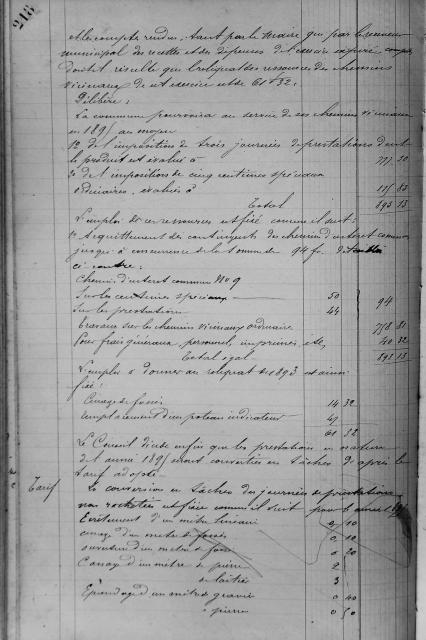 218
et le compte rendu, tant par le Maire que par le receveur
municipal des recettes et des dépenses de l'exercice expiré, compte
dont il résulte que le reliquat des ressources des chemins
vicinaux de cet exercice est de 61f 32c
Délibère :
La commune pourvoira au service de ses chemins vicinaux
en 1895 au moyen
1º de l'imposition de trois journées de prestations dont
le produit est évalué à 777 30
2º de l'imposition de cinq centimes spéciaux
ordinaires, évalués à 115 83
Total 893 13
L'emploi de ces ressources est fixé comme il suit :
1º Acquittement des contingents du chemin d'intérêt commun
jusqu'à concurrence de la somme de 94 fr.
ci contre :
Chemin d'intérêt commun Nº 9
Sur les centimes spéciaux 50
Sur les prestations 44
94
Travaux sur les chemins vicinaux ordinaires 758 81
Pour frais généraux, personnel, imprimés, etc, 40 32
Total égal 893 13
L'emploi à donner au reliquat de 1893 est ainsi
fixé :
Curage de fossés 14 32
emplacement d'un poteau indicateur 47
61 32
Le Conseil décide enfin que les prestations en nature
de l'année 1895 seront converties en tâches d'après le
tarif adopté
Tarif
La conversion en tâches des journées de prestations
non rachetées est fixée comme il suit pour l'année
Ecrêtement d'un mètre linéaire 0 10
curage d'un mètre de fossés 0 10
ouverture d'un mètre de fossé 0 20
Cassage d'un mètre de pierre 2
de laitier 3
Epandage d'un mètre de gravier 0 40
à pierre 0 50